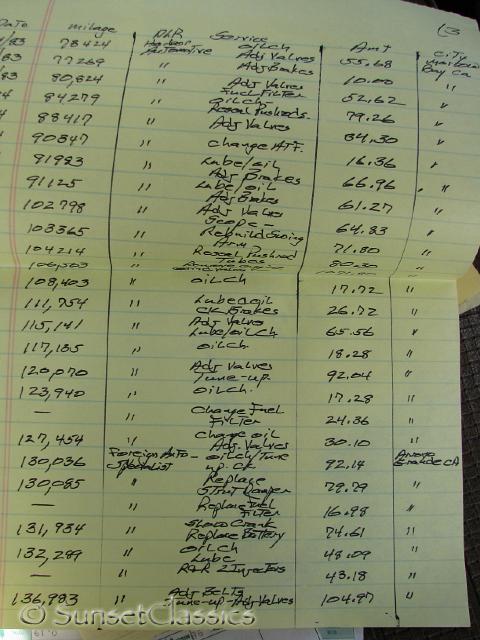 13
Date mileage D&R Service Amt City
/83 78424 Harbor Automotive oil ch Adj Valves 55.68 Bay ca
/83 77269 " Adj Brakes 10.00 "
/83 80,824 " Adj Valves Fuel Filter 52.62 "
84279 " oil ch Reseal Pushrods 79.26 "
88417 " Adj Valves 84.30 "
90847 " change ATF. 16.36 "
91983 " Lube/oil Adj Brakes 66.96 "
91125 " Lube/oil Adj Brakes 61.27 "
102798 " Adj Valves Scope - 64.83 "
103365 " Rebuild Swing Arm 71.80 "
104214 " Reseal Pushrod Tubes 80.30 "
108,403 " oil ch 17.72 "
111,754 " Lube & oil CK Brakes 26.72 "
115,141 " Adj Valves Lube/oil ch 65.56 "
117,135 " oil ch. 18.28 "
120,070 " Adj Valves Tune-up 92.04 "
123,940 " oil ch. 17.28 "
— " Change Fuel Filter 24.36 "
127,454 " change oil Adj. Valves 30.10 "
130,036 Foreign Auto- Specialist oil ch/Tune up. CK 92.14 Arroyo Grande CA
130,085 " Replace Strut Damper 79.79 "
— " Replace Fuel Filter 16.98 "
131,934 " Slow Crank Replace Battery 74.61 "
132,299 " oil ch Lube 48.09 "
— " R&R 2 Injectors 43.18 "
136,983 " Adj Belts Tune-up-Adj Valves 104.97 "
© SunsetClassics